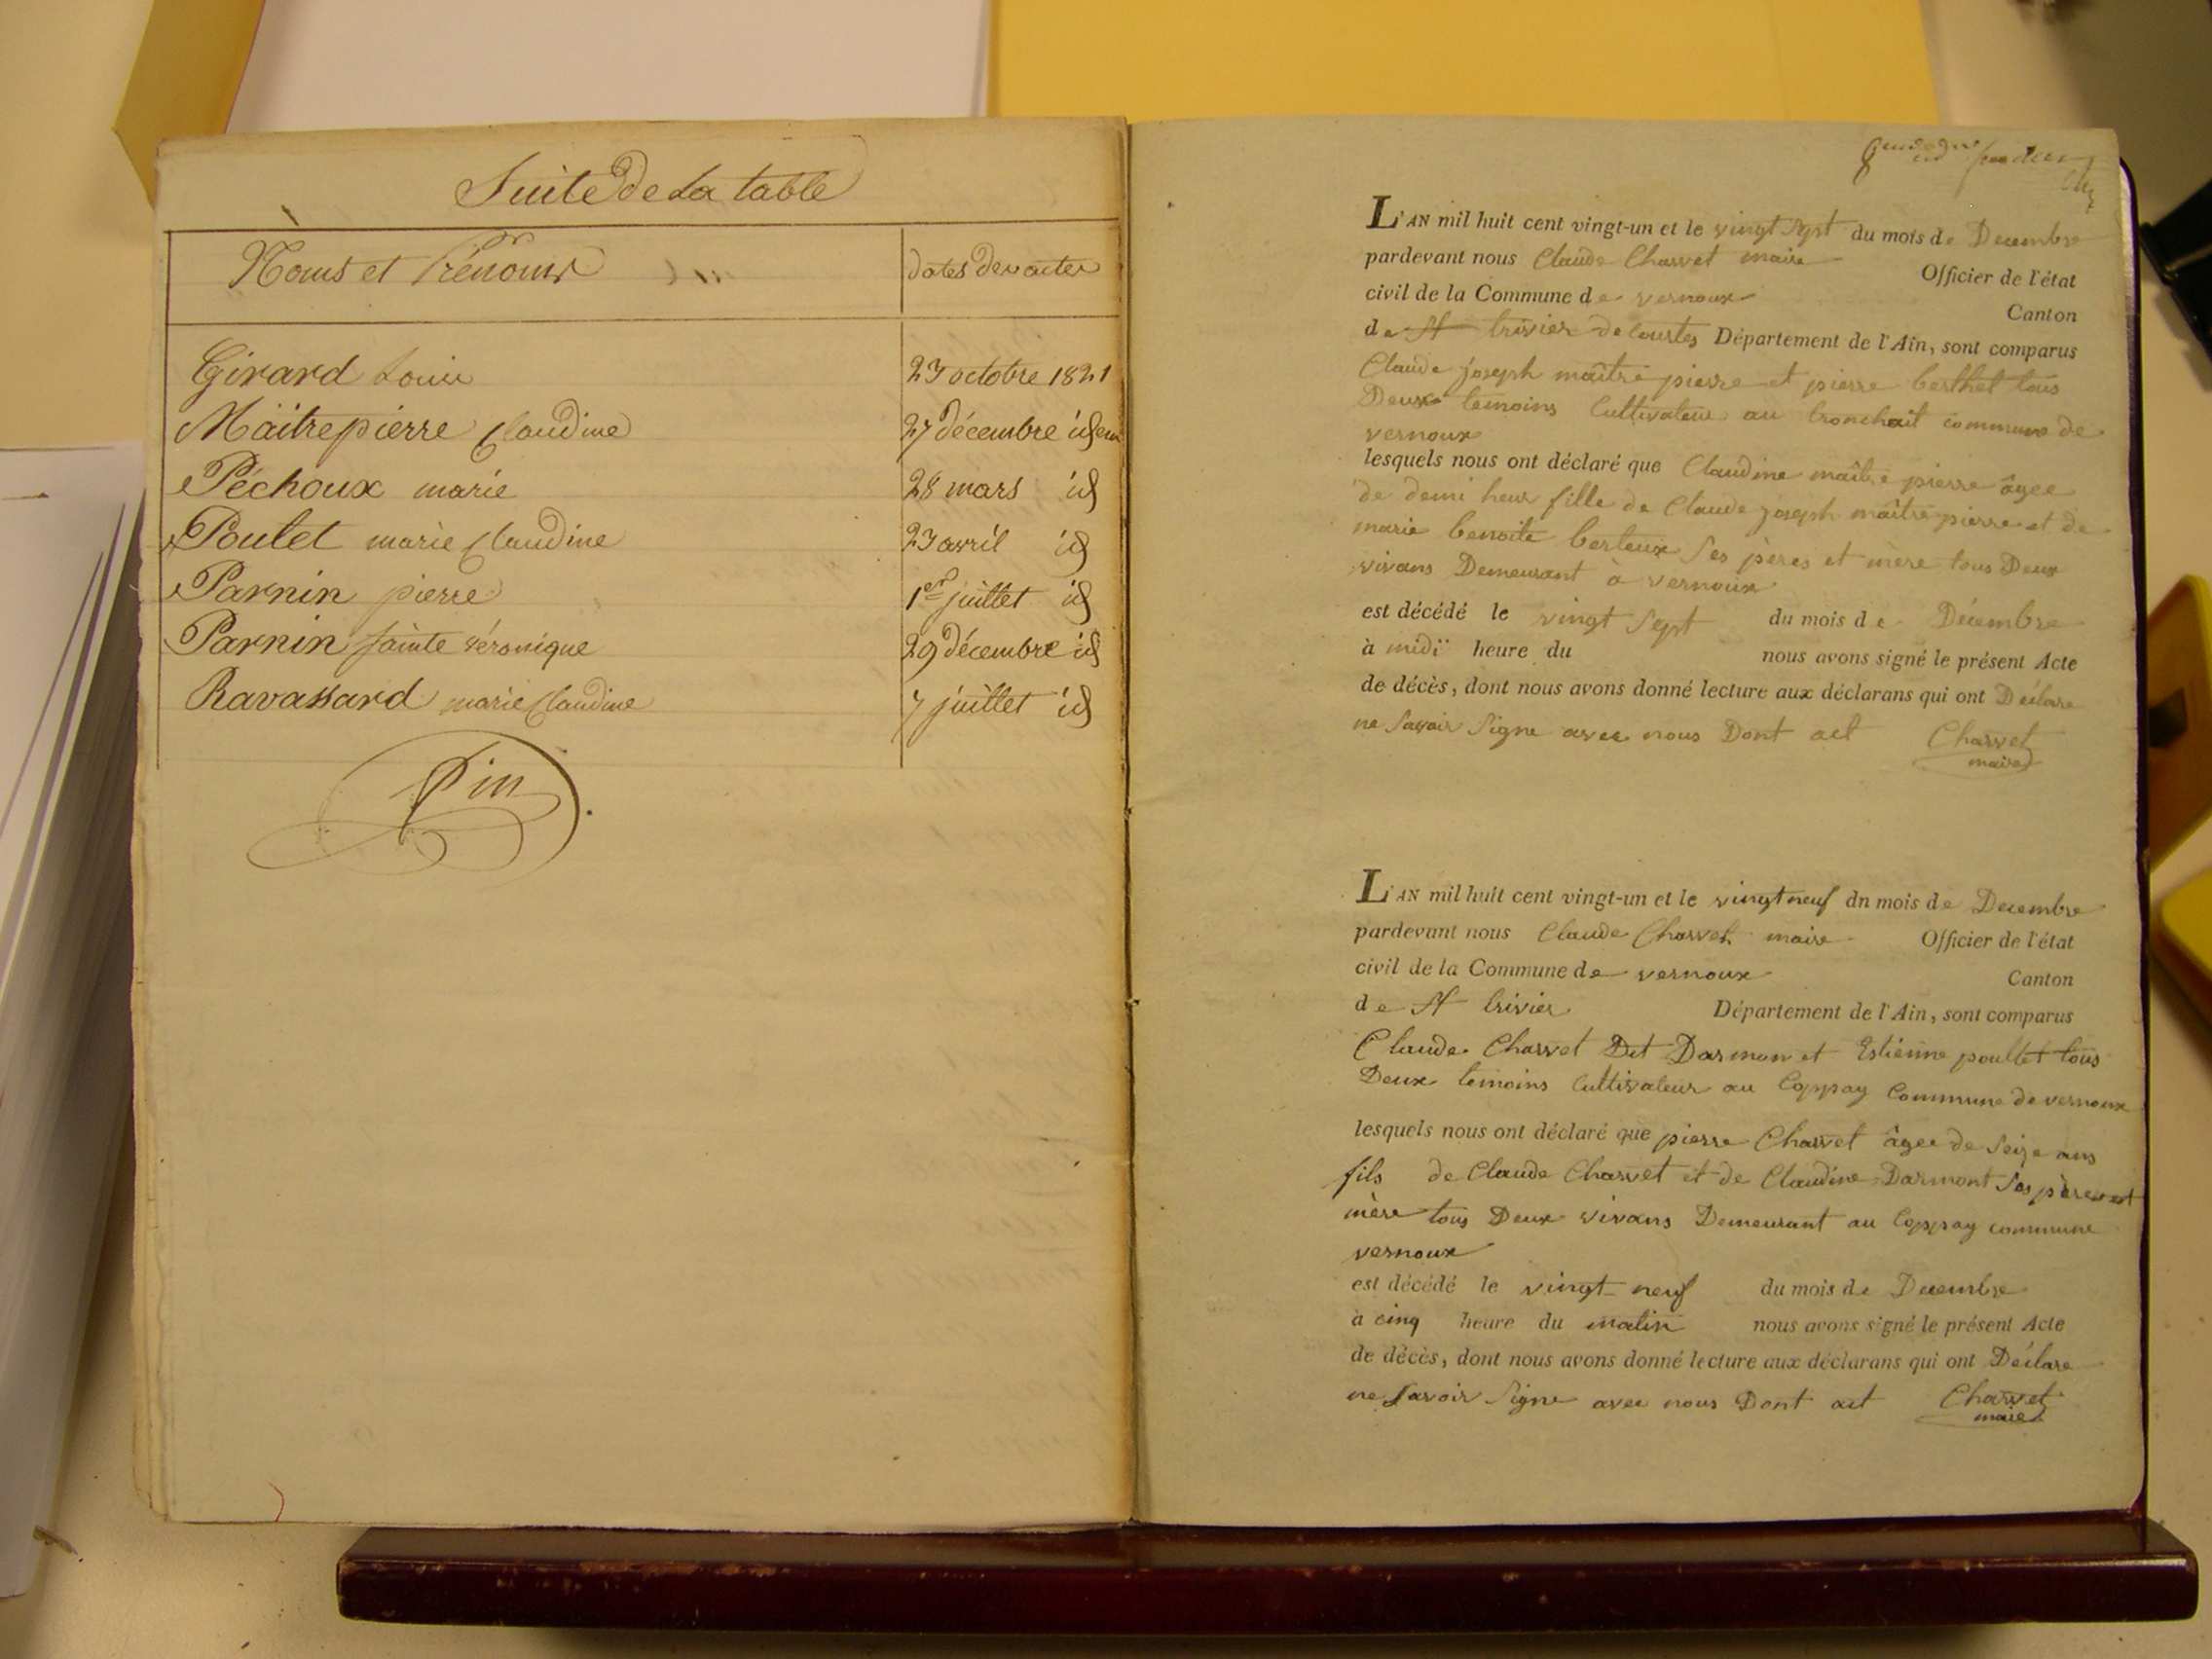 Suite de La table
Noms et Prénoms
dates des actes
Girard Louise
23 octobre 1821
Maîtrepierre Claudine
27 décembre idem
Péchoux marie
28 mars id
Poulet marie Claudine
23 avril id
Parnin pierre
1er juillet id
Parnin sainte véronique
29 décembre id
Ravassard marie Claudine
7 juillet id
L'AN mil huit cent vingt-un et le vingt Sept du mois de Decembre
pardevant nous Claude Charvet maire Officier de l'état
civil de la Commune de vernoux Canton
de St trivier de Courtes Département de l'Ain, sont comparus
Claude joseph maître pierre et pierre berthet tous
Deux temoins Cultivateur au tronchait commune de
vernoux
lesquels nous ont déclaré que Claudine maître pierre âgee
de demi heur fille de Claude joseph maître pierre et de
marie benoite berteux Ses pères et mère tous Deux
vivans Demeurant à vernoux
est décédé le vingt Sept du mois de Décembre
à midi heure du nous avons signé le présent Acte
de décès, dont nous avons donné lecture aux déclarans qui ont Déclare
ne Savoir Signe avec nous Dont act Charvet
maire
L'AN mil huit cent vingt-un et le vingt neuf dn mois de Decembre
pardevant nous Claude Charvet maire Officier de l'état
civil de la Commune de vernoux Canton
de St trivier Département de l'Ain, sont comparus
Claude Charvet Dit Darmon et Estienne poullet tous
Deux temoins Cultivateur au Coppay Commune de vernoux
lesquels nous ont déclaré que pierre Charvet âgee de Seize ans
fils de Claude Charvet et de Claudine Darmont Ses pères et
mère tous Deux vivans Demeurant au Coppay commune
vernoux
est décédé le vingt neuf du mois de Decembre
à cinq heure du matin nous avons signé le présent Acte
de décès, dont nous avons donné lecture aux déclarans qui ont Déclare
ne Savoir Signe avec nous Dont act Charvet
maire